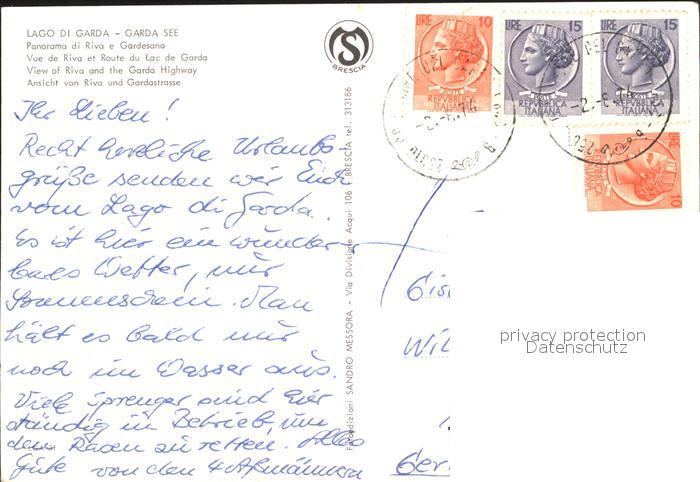 LAGO DI GARDA - GARDA SEE
Panorama di Riva e Gardesana
Vue de Riva et Route du Lac de Garda
View of Riva and the Garda Highway
Ansicht von Riva und Gardastrasse
BRESCIA
LIRE 10
POSTE
REPVBBLICA
ITALIANA
LIRE 15
POSTE
REPVBBLICA
ITALIANA
LIRE 15
POSTE
REPVBBLICA
ITALIANA
LIRE 10
REPVBBLICA
ITALIANA
Ihr Lieben!
Recht herzliche Urlaubs-
grüße senden wir Euch
vom Lago di Garda.
Es ist hier ein wunder
bares Wetter, nur
Sonnenschein. Man
hält es bald nur
noch im Wasser aus.
Viele Sprenger sind hier
ständig in Betrieb, um
den Rasen zu retten. Alles
Gute von den 4
Fotoedizioni SANDRO MESSORA - Via Divisione Acqui 106 BRESCIA tel. 313186
privacy protection
Datenschutz